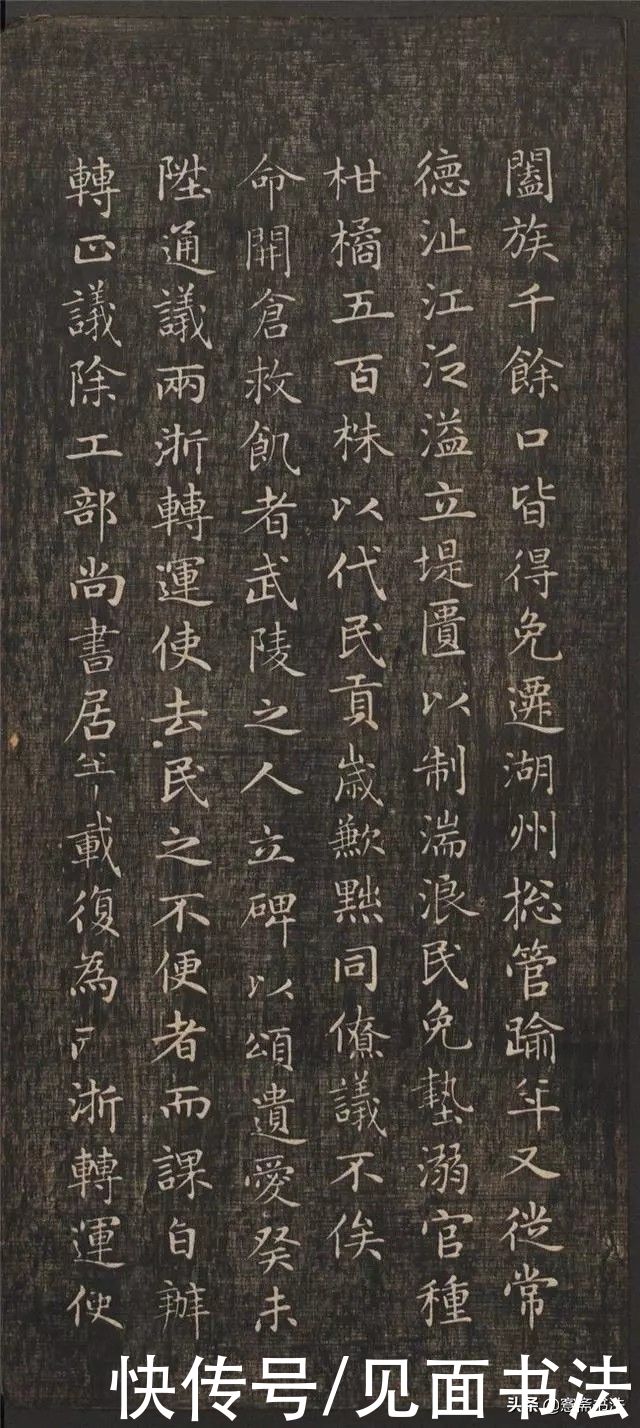 闔族千餘口皆得免遷湖州捴管踰年又從常
德沚江泛溢立堤匱以制湍浪民免墊溺官種
柑橘五百株以代民貢歲歉黜同僚議不俟
命開倉救飢者武陵之人立碑以頌遺愛癸未
陞通議兩浙轉運使去民之不便者而課自辦
轉正議除工部尚書居年載復為浙轉運使
快传号/见面书法
头条@窓斋书法